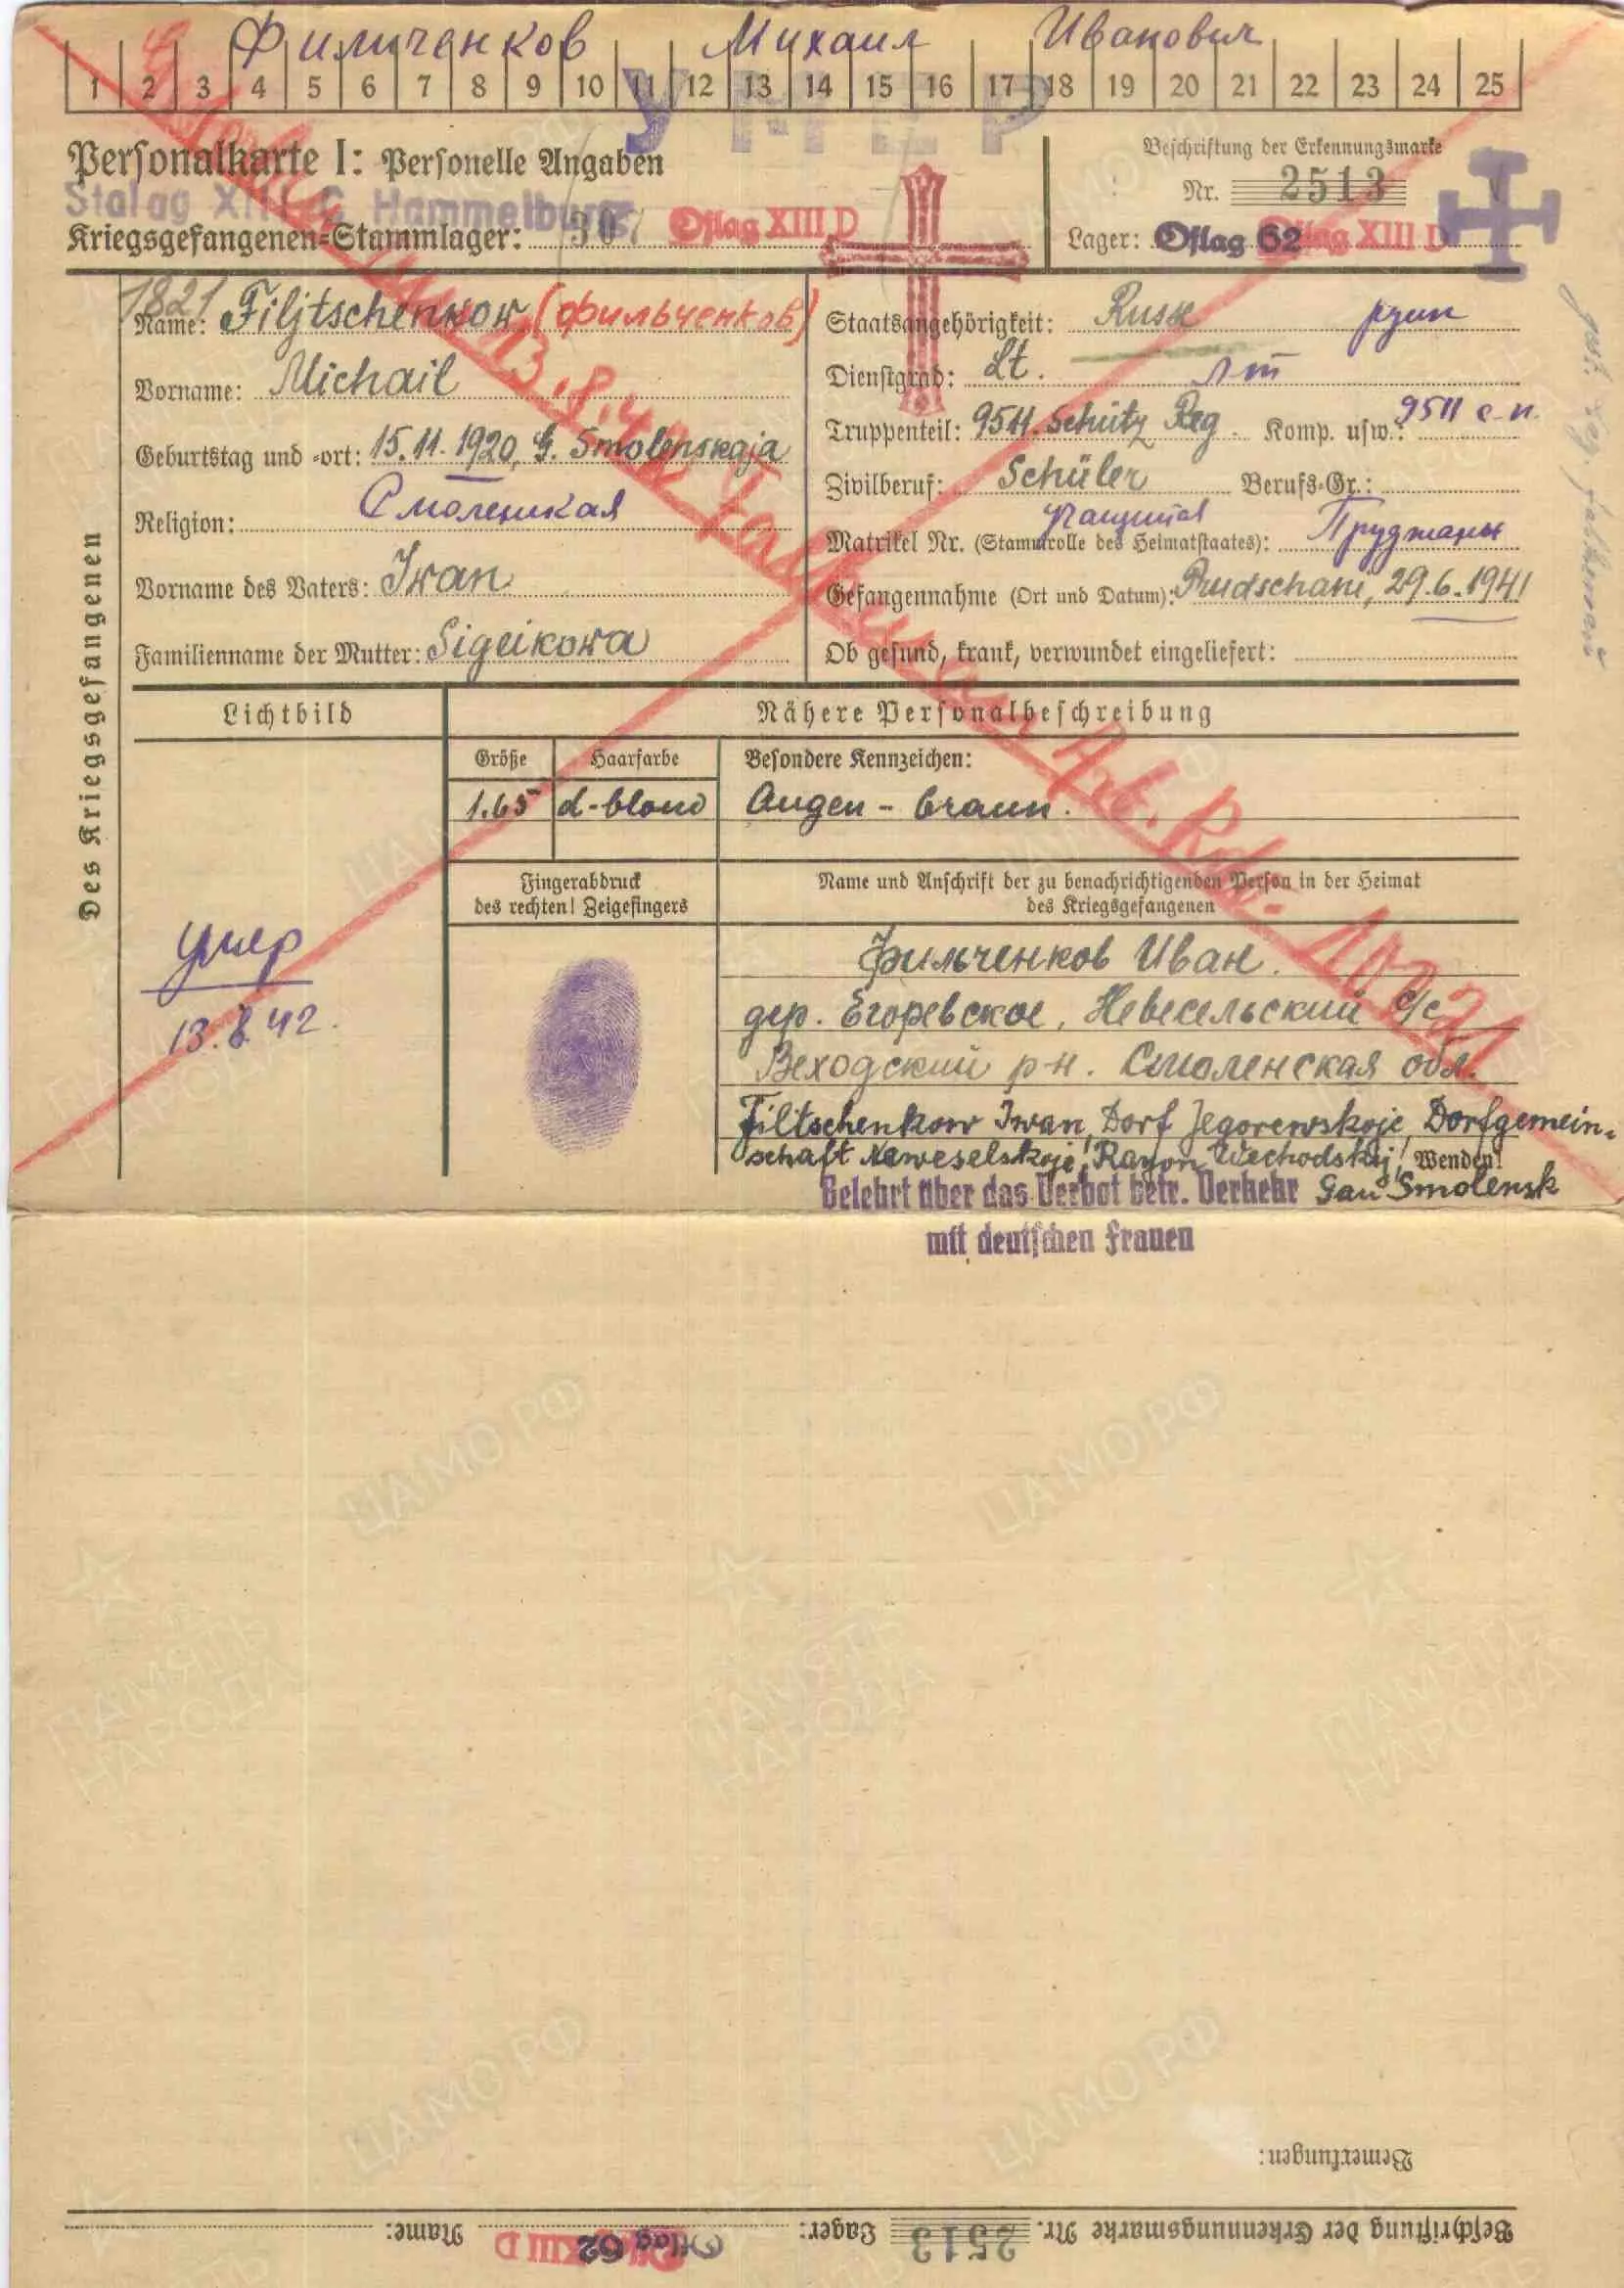 Фильченков Михаил Иванович
1 2 3 4 5 6 7 8 9 10 11 12 13 14 15 16 17 18 19 20 21 22 23 24 25
УМЕР
Personalkarte I: Personelle Angaben
Beschriftung der Erkennungsmarke
Nr. 2513
Stalag XIII C Hammelburg
Kriegsgefangenen-Stammlager: 307 Oflag XIII D
Lager: Oflag 62 Oflag XIII D
Des Kriegsgefangenen
1821
Name: Filjtschenkow (Фильченков)
Vorname: Michail
Geburtstag und -ort: 15.11.1920, G. Smolenskaja
Смоленская
Religion:
Vorname des Vaters: Iwan
Familienname der Mutter: Sigeikowa
Staatsangehörigkeit: Russe
Dienstgrad: Lt. лт
Truppenteil: 9511. Schütz Reg. Komp. usw.: 9511 с-п
Zivilberuf: Schüler Berufs-Gr.:
учащийся
Matrikel Nr. (Stammrolle des Heimatstaates): Пружаны
Gefangennahme (Ort und Datum): Prudschani, 29.6.1941
Ob gesund, krank, verwundet eingeliefert:
Lichtbild
Nähere Personalbeschreibung
Größe Haarfarbe Besondere Kennzeichen:
1.65 d-blond Augen - braun.
Fingerabdruck
des rechten! Zeigefingers
Name und Anschrift der zu benachrichtigenden Person in der Heimat
des Kriegsgefangenen
умер
13.8.42.
Фильченков Иван.
дер. Егоревское, Невесельский с/с
Веходский р-н. Смоленская обл.
Filtschenkow Iwan, Dorf Jegorewskoje, Dorfgemein-
schaft Neweselskoje, Rayon Wechodskij, Wenden!
Gau Smolensk
Belehrt über das Verbot betr. Verkehr
mit deutschen Frauen
13.8.42
Arb. Kdo. 10021
ЦАМО РФ
ПАМЯТЬ НАРОДА
Bemerkungen:
Beschriftung der Erkennungsmarke Nr. 2513 Lager: Oflag 62 Oflag XIII D Name: